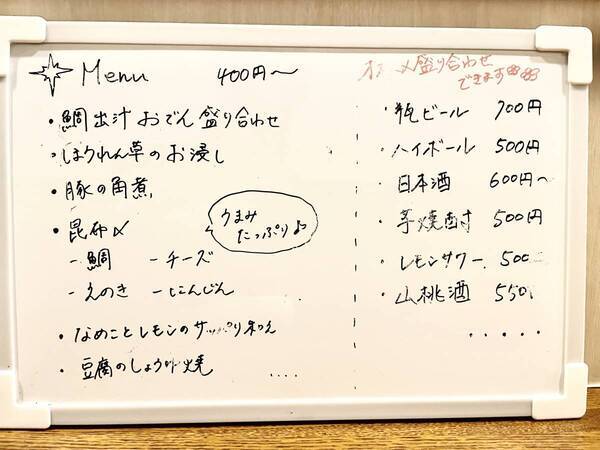 Menu 400円〜
・鯛出汁おでん盛り合わせ
・ほうれん草のお浸し
・豚の角煮
・昆布〆
うまみ
たっぷり♪
-鯛 -チーズ
-えのき -にんじん
・なめことレモンのサッパリ和え
・豆腐のしょうゆ焼
....
盛り合わせ
できます
・瓶ビール 700円
・ハイボール 500円
・日本酒 600円〜
・芋焼酎 500円
・レモンサワー 500
・山桃酒 550
.....